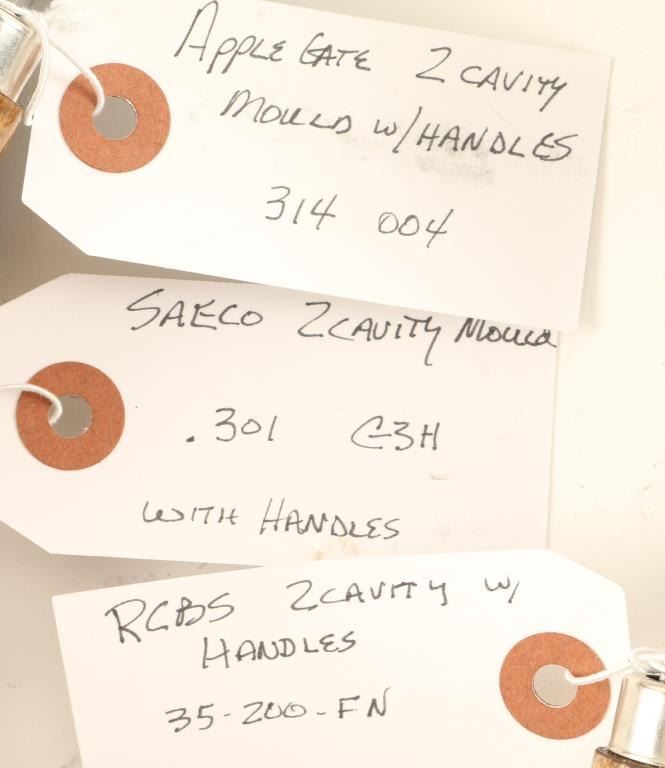 APPLEGATE 2 CAVITY
MOULD W/HANDLES
314 004
SAECO 2 CAVITY MOULD
.301 G3H
WITH HANDLES
RCBS 2 CAVITY W/
HANDLES
35-200-FN